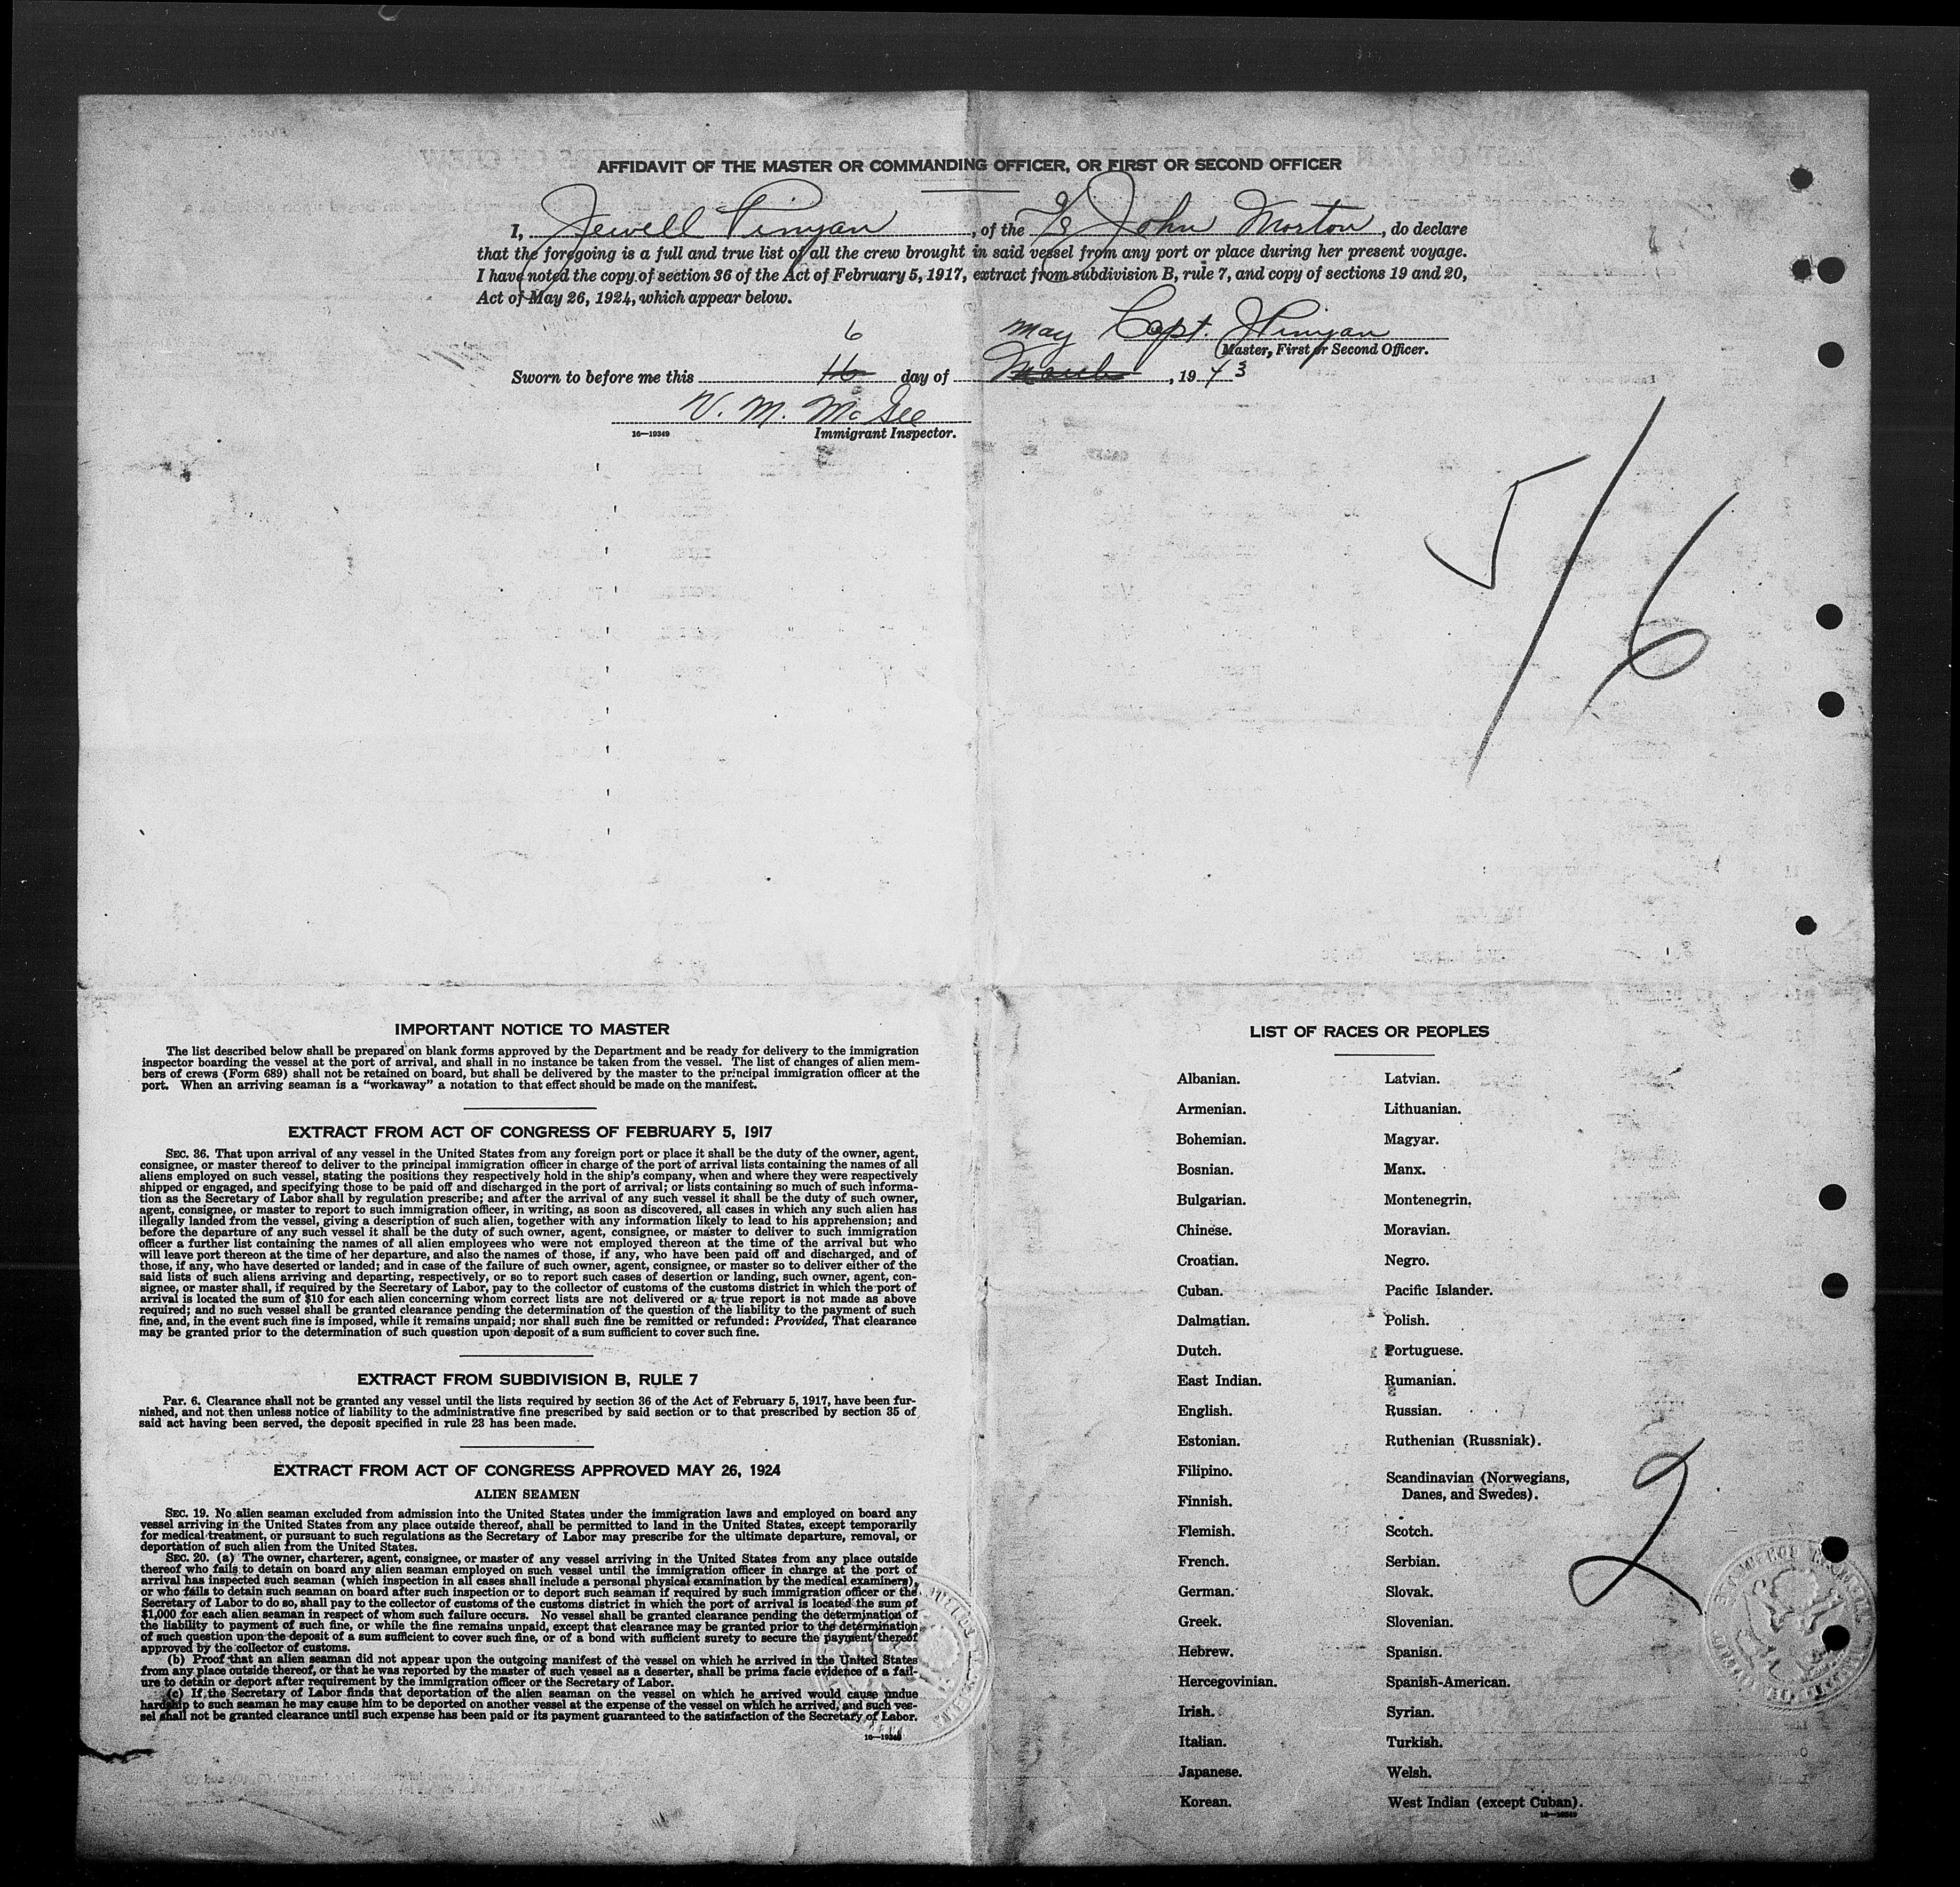 AFFIDAVIT OF THE MASTER OR COMMANDING OFFICER, OR FIRST OR SECOND OFFICER
I, Jewell Pinyan, of the John Morton, do declare
that the foregoing is a full and true list of all the crew brought in said vessel from any port or place during her present voyage.
I have noted the copy of section 36 of the Act of February 5, 1917, extract from subdivision B, rule 7, and copy of sections 19 and 20,
Act of May 26, 1924, which appear below.
6 May Capt. J Pinyan
Master, First or Second Officer.
Sworn to before me this 16 day of March, 1943
V. M. McGee
16—19349 Immigrant Inspector.
5/6
IMPORTANT NOTICE TO MASTER
The list described below shall be prepared on blank forms approved by the Department and be ready for delivery to the immigration
inspector boarding the vessel at the port of arrival, and shall in no instance be taken from the vessel. The list of changes of alien mem-
bers of crews (Form 689) shall not be retained on board, but shall be delivered by the master to the principal immigration officer at the
port. When an arriving seaman is a "workaway" a notation to that effect should be made on the manifest.
EXTRACT FROM ACT OF CONGRESS OF FEBRUARY 5, 1917
SEC. 36. That upon arrival of any vessel in the United States from any foreign port or place it shall be the duty of the owner, agent,
consignee, or master thereof to deliver to the principal immigration officer in charge of the port of arrival lists containing the names of all
aliens employed on such vessel, stating the positions they respectively hold in the ship's company, when and where they were respectively
shipped or engaged, and specifying those to be paid off and discharged in the port of arrival; or lists containing so much of such informa-
tion as the Secretary of Labor shall by regulation prescribe; and after the arrival of any such vessel it shall be the duty of such owner,
agent, consignee, or master to report to such immigration officer, in writing, as soon as discovered, all cases in which any such alien has
illegally landed from the vessel, giving a description of such alien, together with any information likely to lead to his apprehension; and
before the departure of any such vessel it shall be the duty of such owner, agent, consignee, or master to deliver to such immigration
officer a further list containing the names of all alien employees who were not employed thereon at the time of the arrival but who
will leave port thereon at the time of her departure, and also the names of those, if any, who have been paid off and discharged, and of
those, if any, who have deserted or landed; and in case of the failure of such owner, agent, consignee, or master so to deliver either of the
said lists of such aliens arriving and departing, respectively, or so to report such cases of desertion or landing, such owner, agent, con-
signee, or master shall, if required by the Secretary of Labor, pay to the collector of customs of the customs district in which the port of
arrival is located the sum of $10 for each alien concerning whom correct lists are not delivered or a true report is not made as above
required; and no such vessel shall be granted clearance pending the determination of the question of the liability to the payment of such
fine, and, in the event such fine is imposed, while it remains unpaid; nor shall such fine be remitted or refunded: Provided, That clearance
may be granted prior to the determination of such question upon deposit of a sum sufficient to cover such fine.
EXTRACT FROM SUBDIVISION B, RULE 7
Par. 6. Clearance shall not be granted any vessel until the lists required by section 36 of the Act of February 5, 1917, have been fur-
nished, and not then unless notice of liability to the administrative fine prescribed by said section or to that prescribed by section 35 of
said act having been served, the deposit specified in rule 23 has been made.
EXTRACT FROM ACT OF CONGRESS APPROVED MAY 26, 1924
ALIEN SEAMEN
SEC. 19. No alien seaman excluded from admission into the United States under the immigration laws and employed on board any
vessel arriving in the United States from any place outside thereof, shall be permitted to land in the United States, except temporarily
for medical treatment, or pursuant to such regulations as the Secretary of Labor may prescribe for the ultimate departure, removal, or
deportation of such alien from the United States.
SEC. 20. (a) The owner, charterer, agent, consignee, or master of any vessel arriving in the United States from any place outside
thereof who fails to detain on board any alien seaman employed on such vessel until the immigration officer in charge at the port of
arrival has inspected such seaman (which inspection in all cases shall include a personal physical examination by the medical examiners),
or who fails to detain such seaman on board after such inspection or to deport such seaman if required by such immigration officer or the
Secretary of Labor to do so, shall pay to the collector of customs of the customs district in which the port of arrival is located the sum of
$1,000 for each alien seaman in respect of whom such failure occurs. No vessel shall be granted clearance pending the determination of
the liability to payment of such fine, or while the fine remains unpaid, except that clearance may be granted prior to the determination
of such question upon the deposit of a sum sufficient to cover such fine, or of a bond with sufficient surety to secure the payment thereof
approved by the collector of customs.
(b) Proof that an alien seaman did not appear upon the outgoing manifest of the vessel on which he arrived in the United States
from any place outside thereof, or that he was reported by the master of such vessel as a deserter, shall be prima facie evidence of a fail-
ure to detain or deport after requirement by the immigration officer or the Secretary of Labor.
(c) If the Secretary of Labor finds that deportation of the alien seaman on the vessel on which he arrived would cause undue
hardship to such seaman he may cause him to be deported on another vessel at the expense of the vessel on which he arrived, and such ves-
sel shall not be granted clearance until such expense has been paid or its payment guaranteed to the satisfaction of the Secretary of Labor.
16—19349
LIST OF RACES OR PEOPLES
Albanian.
Armenian.
Bohemian.
Bosnian.
Bulgarian.
Chinese.
Croatian.
Cuban.
Dalmatian.
Dutch.
East Indian.
English.
Estonian.
Filipino.
Finnish.
Flemish.
French.
German.
Greek.
Hebrew.
Hercegovinian.
Irish.
Italian.
Japanese.
Korean.
Latvian.
Lithuanian.
Magyar.
Manx.
Montenegrin.
Moravian.
Negro.
Pacific Islander.
Polish.
Portuguese.
Rumanian.
Russian.
Ruthenian (Russniak).
Scandinavian (Norwegians,
Danes, and Swedes).
Scotch.
Serbian.
Slovak.
Slovenian.
Spanish.
Spanish-American.
Syrian.
Turkish.
Welsh.
West Indian (except Cuban).
16—19349
2